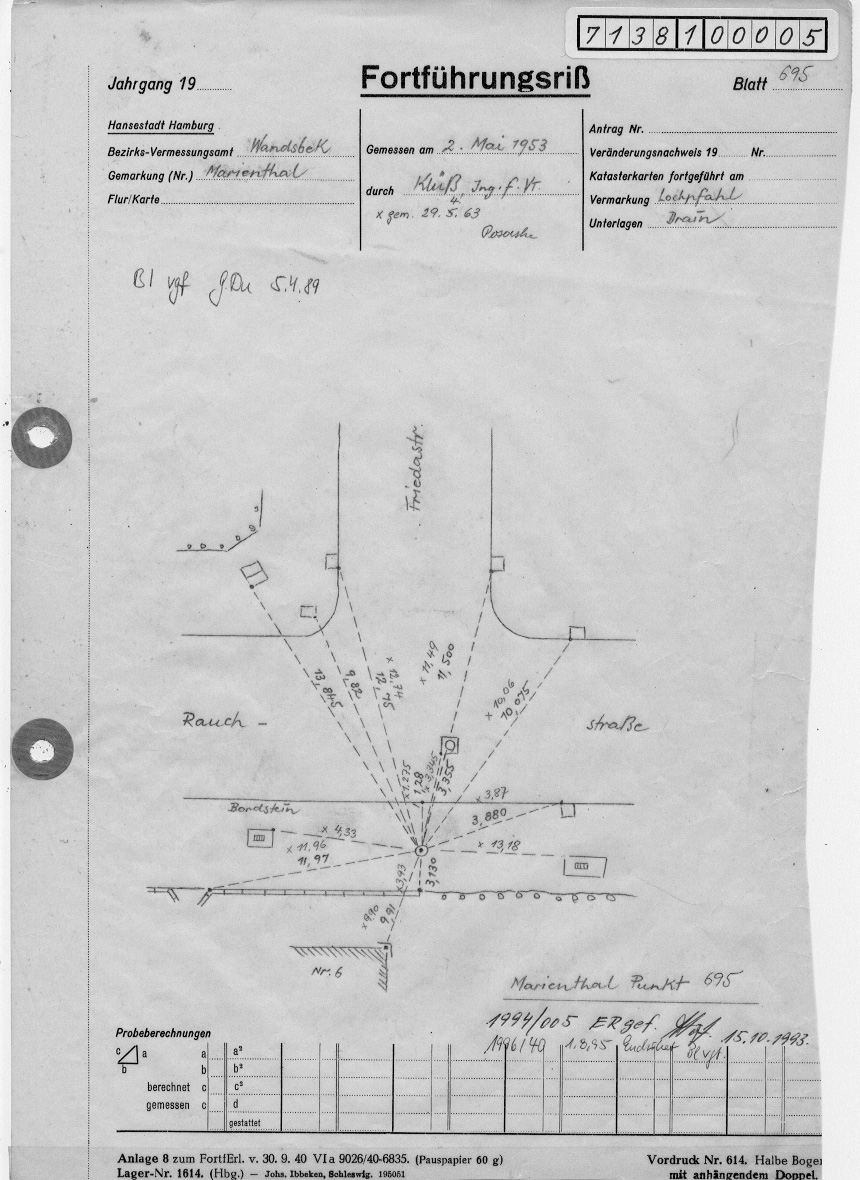 7138100005
Jahrgang 19
Fortführungsriß
Blatt 695
Hansestadt Hamburg
Bezirks-Vermessungsamt Wandsbek
Gemarkung (Nr.) Marienthal
Flur/Karte
Gemessen am 2. Mai 1953
durch Klüß, Ing. f. Vt.
x gem. 29. 5. 63
4.
Antrag Nr.
Veränderungsnachweis 19 Nr.
Katasterkarten fortgeführt am
Vermarkung Lochpfahl
Unterlagen Drain
Bl vgf G.Du 5.4.89
Friedastr.
13,845
9,82
x 12,74
12,75
x 11,49
11,500
x 10,06
10,075
Rauch - straße
x 1,275
1,28
x 3,345
3,355
x 3,87
3,880
Bordstein
x 4,33
x 11,96
11,97
x 13,18
x 3,93
3,130
x 9,90
9,91
Nr. 6
Marienthal Punkt 695
1994/005 ER gef. 15.10.1993.
1996/40 1.8.95 Bl vgf.
Probeberechnungen
c a b
a a²
b b²
berechnet c c²
gemessen c d
gestattet
Anlage 8 zum FortfErl. v. 30. 9. 40 VI a 9026/40-6835. (Pauspapier 60 g)
Lager-Nr. 1614. (Hbg.) — Johs. Ibbeken, Schleswig. 195051
Vordruck Nr. 614. Halbe Bogen
mit anhängendem Doppel.